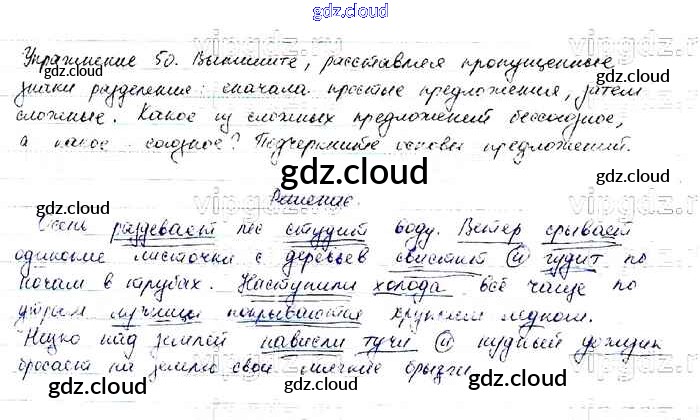 gdz.cloud
Упражнение 50. Выпишите, расставляя пропущенные
gdz.cloud gdz.cloud
знаки разделения: сначала простые предложения, затем
сложные. Какое из сложных предложений бессоюзное,
gdz.cloud gdz.cloud
а какое союзное? Подчеркните основы предложений.
gdz.cloud
Решение.
Осень раздевает лес студит воду. Ветер срывает
одинокие листочки с деревьев свистит и гудит по
gdz.cloud gdz.cloud
ночам в трубах. Наступили холода всё чаще по
утрам лужицы покрываются хрупким ледком.
gdz.cloud gdz.cloud
Низко над землей нависли тучи и нудный дождик
бросает на землю свои мелкие брызги.
gdz.cloud gdz.cloud